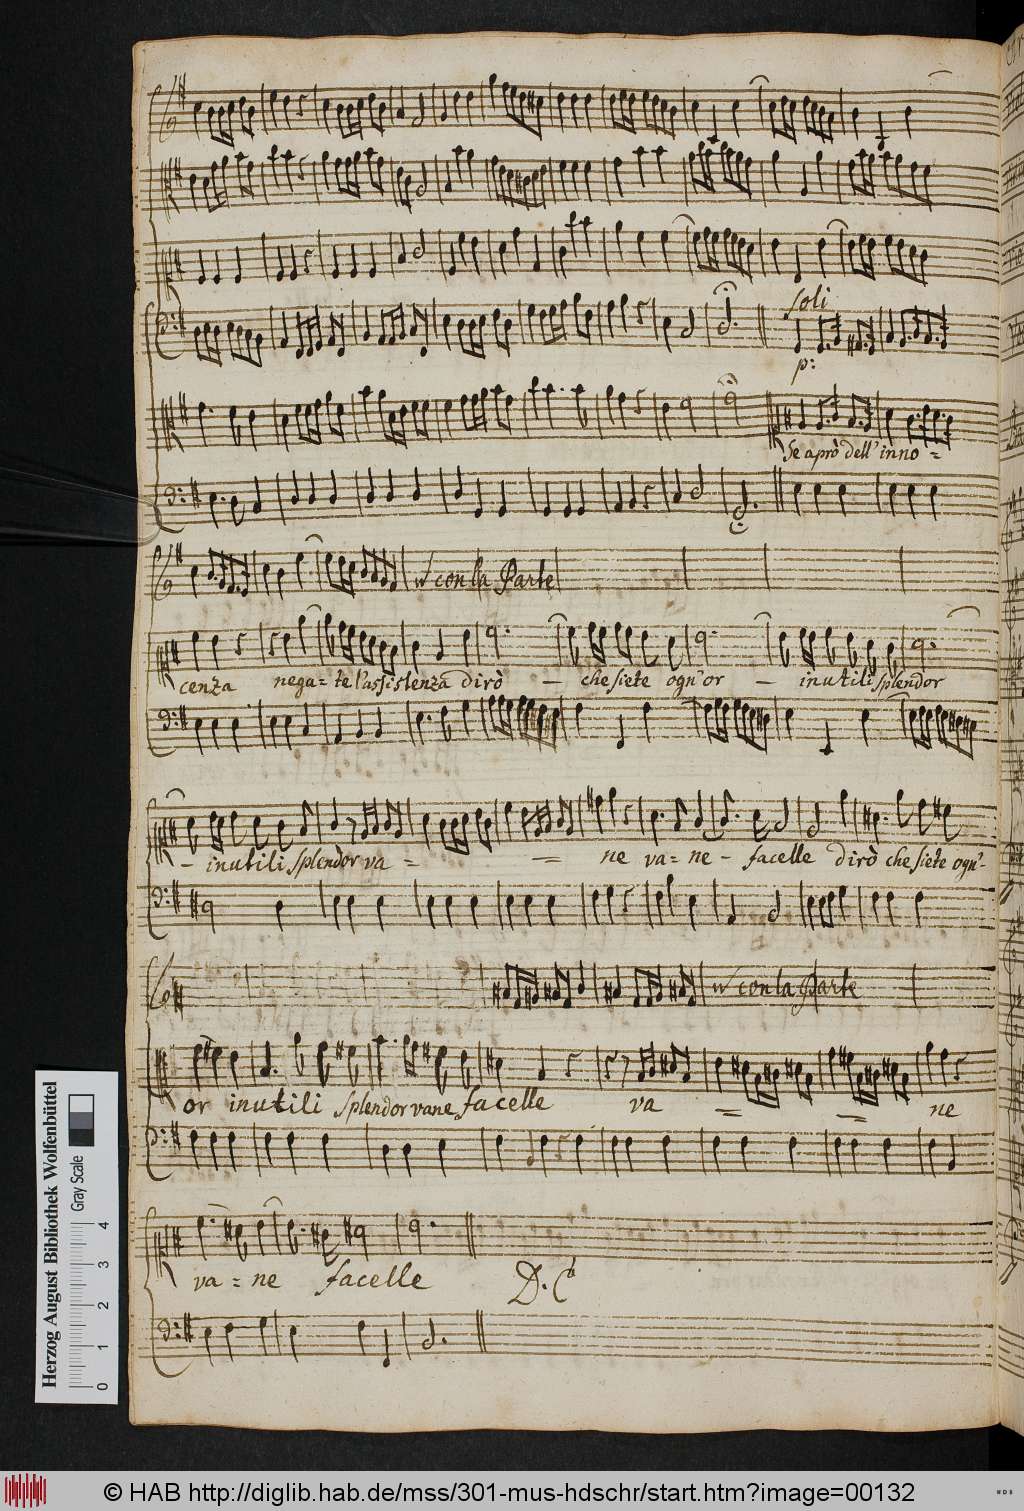 Soli
p:
Se aprò dell' inno =
con la Parte
cenza nega = te l'assistenza dirò — che siete ogn' or — inutili splendor
- inutili splendor va = = ne va = ne - facelle dirò che siete ogn'-
con la Parte
or inutili splendor vane facelle va = = ne
va = ne facelle D. C
Herzog August Bibliothek Wolfenbüttel
Gray Scale
0 1 2 3 4
© HAB http://diglib.hab.de/mss/301-mus-hdschr/start.htm?image=00132